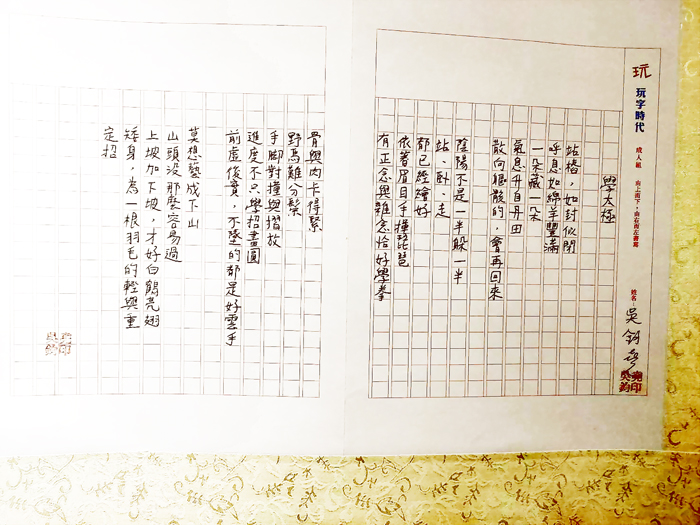 玩
玩字時代
成人組
由上而下,由右而左書寫
姓名:
吳鈞堯
吳鈞堯印
學太極
站樁,如封似閉
呼息如綿羊豐滿
一朵藏一朵
氣息升自丹田
散向軀散的,會再回來
陰陽不是一半躲一半
站、臥、走
都已經繪好
依著眉目手揮琵琶
有正念與雜念恰好學拳
骨與肉卡得緊
野馬難分鬃
手腳對撞與摺放
進度不只學招畫圓
前虛後實,不墜的都是好雲手
莫想藝成下山
山頭沒那麼容易過
上坡加下坡,才好白鶴亮翅
矮身,為一根羽毛的輕與重
定招
吳鈞堯印